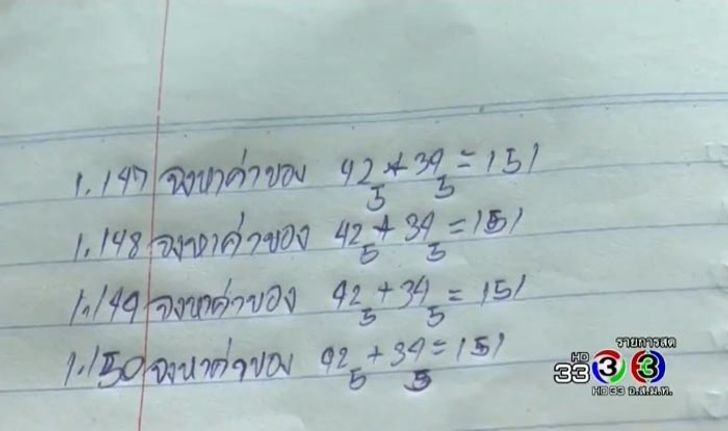 1.147 จงหาค่าของ 42₅ + 34₅ = 151
1.148 จงหาค่าของ 42₅ + 34₅ = 151
1.149 จงหาค่าของ 42₅ + 34₅ = 151
1.150 จงหาค่าของ 42₅ + 34₅ = 151
รายการสด
HD 33 3 3
HD33 อ.ส.ม.ท.